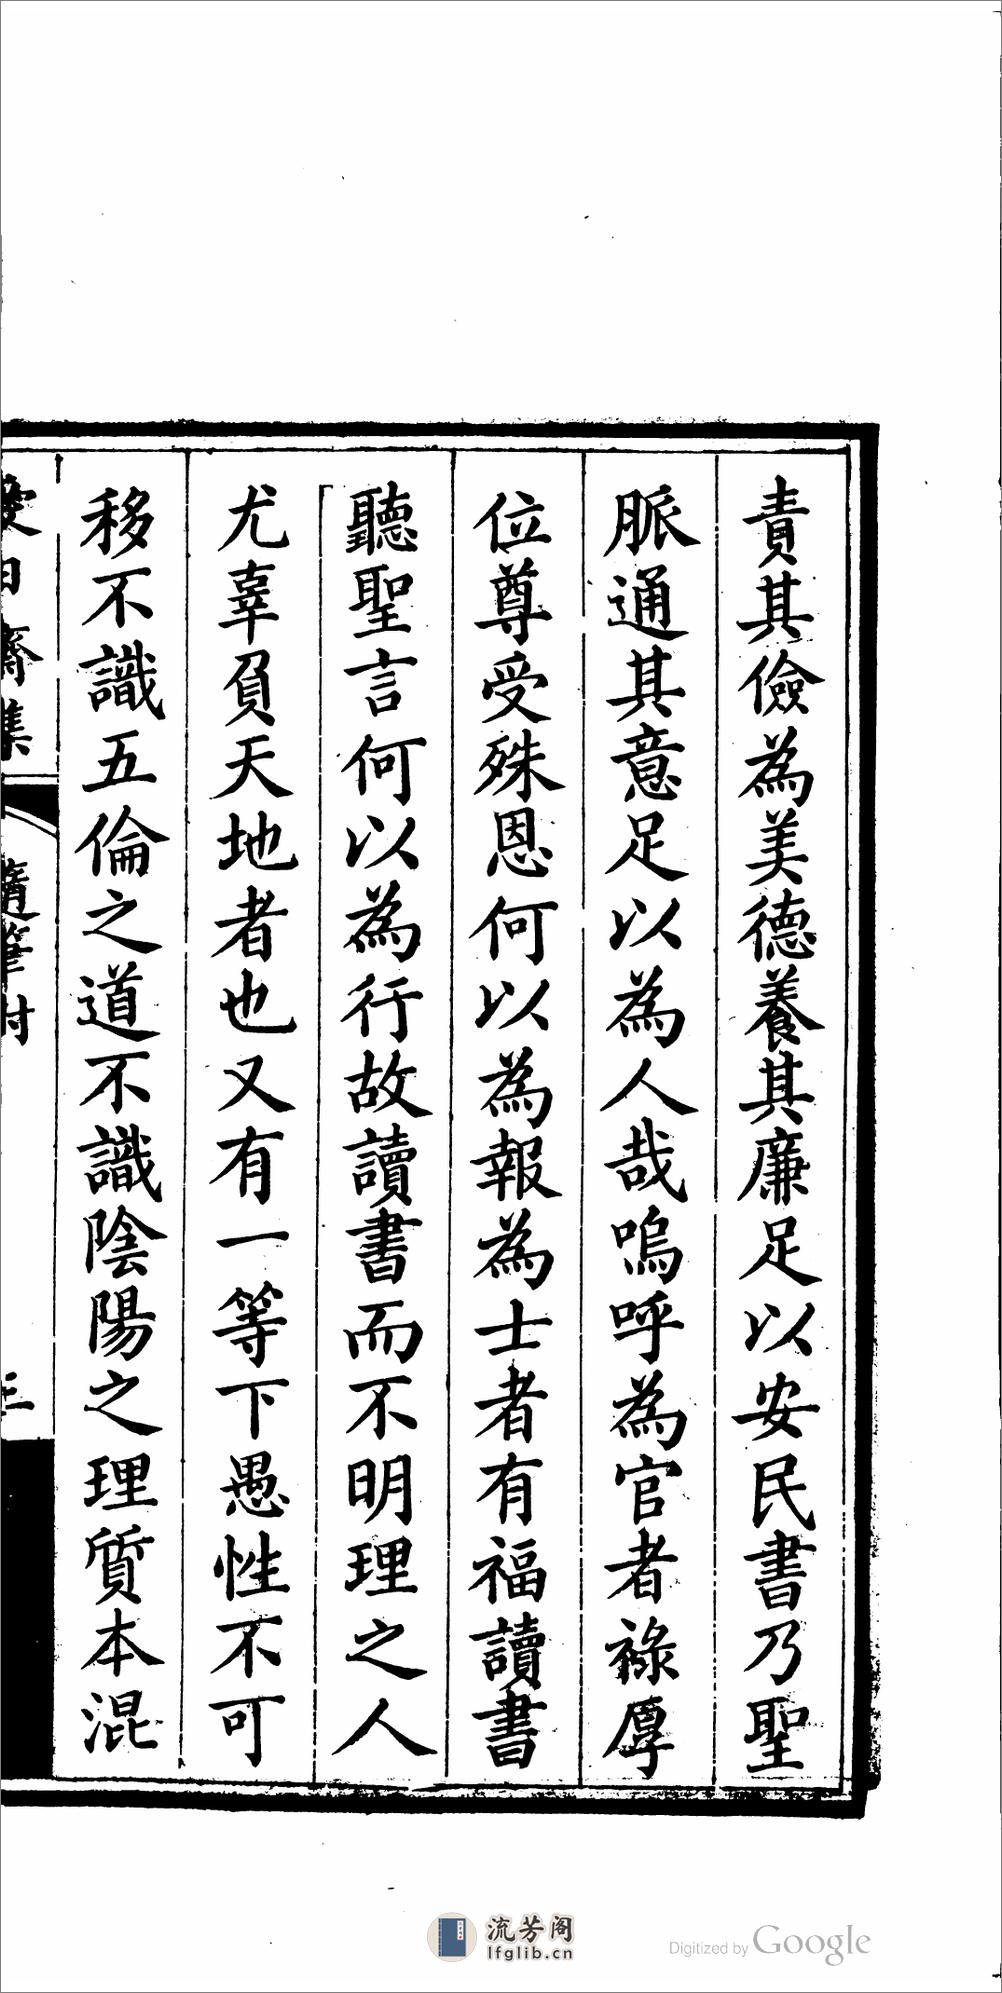 責其儉為美德養其廉足以安民書乃聖
脈通其意足以為人哉嗚呼為官者祿厚
位尊受殊恩何以為報為士者有福讀書
聽聖言何以為行故讀書而不明理之人
尤辜負天地者也又有一等下愚性不可
移不識五倫之道不識陰陽之理質本混
愛日齋集
隨筆付
流芳阁
lfglib.cn
Digitized by Google